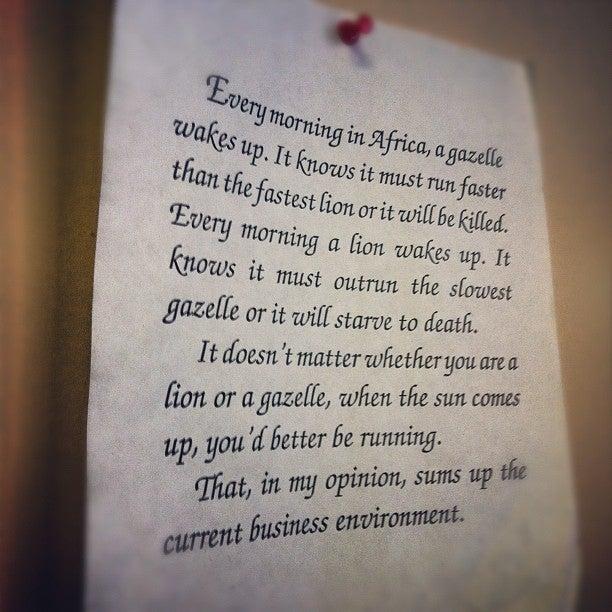 Every morning in Africa, a gazelle
wakes up. It knows it must run faster
than the fastest lion or it will be killed.
Every morning a lion wakes up. It
knows it must outrun the slowest
gazelle or it will starve to death.
It doesn't matter whether you are a
lion or a gazelle, when the sun comes
up, you'd better be running.
That, in my opinion, sums up the
current business environment.